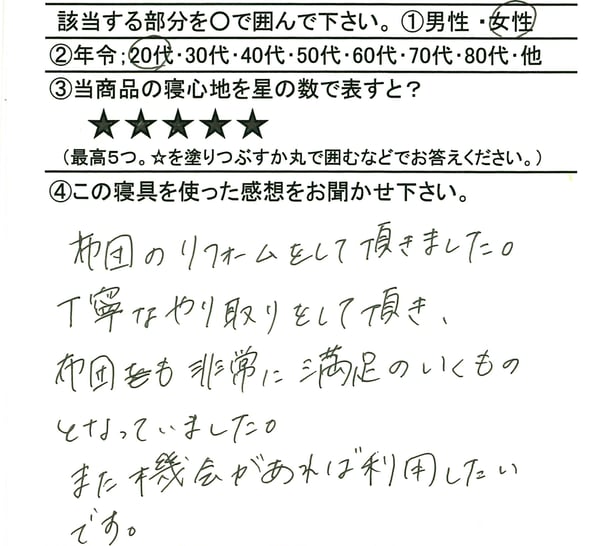 該当する部分を〇で囲んで下さい。①男性・女性
②年令;20代・30代・40代・50代・60代・70代・80代・他
③当商品の寝心地を星の数で表すと?
★★★★★
(最高5つ。☆を塗りつぶすか丸で囲むなどでお答えください。)
④この寝具を使った感想をお聞かせ下さい。
布団のリフォームをして頂きました。
丁寧なやり取りをして頂き、
布団も非常に満足のいくもの
となっていました。
また機会があれば利用したい
です。